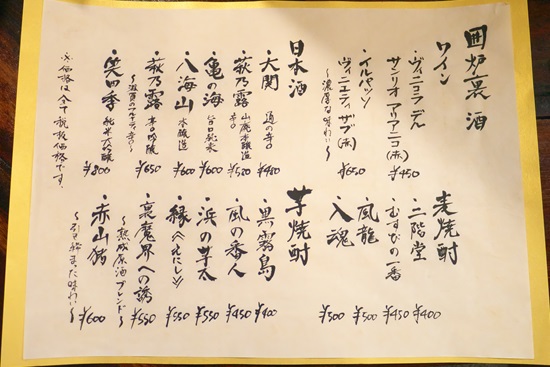 囲炉裏 酒
ワイン
・ヴィニコラ デル
サンリオ アリアニコ(赤) ¥450
・イルパッソ
ヴィニエティ ザブ(赤) ¥650
〜濃厚な味わい〜
日本酒
・大関 辛口 ¥480
・萩乃露 山廃本醸造 ¥520
・亀の海 辛口 ¥600
・八海山 本醸造 ¥600
・萩乃露 吟醸 ¥650
・笑四季 純米大吟醸 ¥800
※価格は全て税抜価格です。
麦焼酎
・二階堂 ¥400
・むすびの一番 ¥450
・風龍 ¥500
・入魂 ¥500
芋焼酎
・黒霧島 ¥400
・風の番人 ¥450
・浜の芋太 ¥550
・縁 ¥550
・裏魔界への誘 ¥550
〜熟成原酒ブレンド〜
・赤山猪 ¥600
〜引き締まった味わい〜